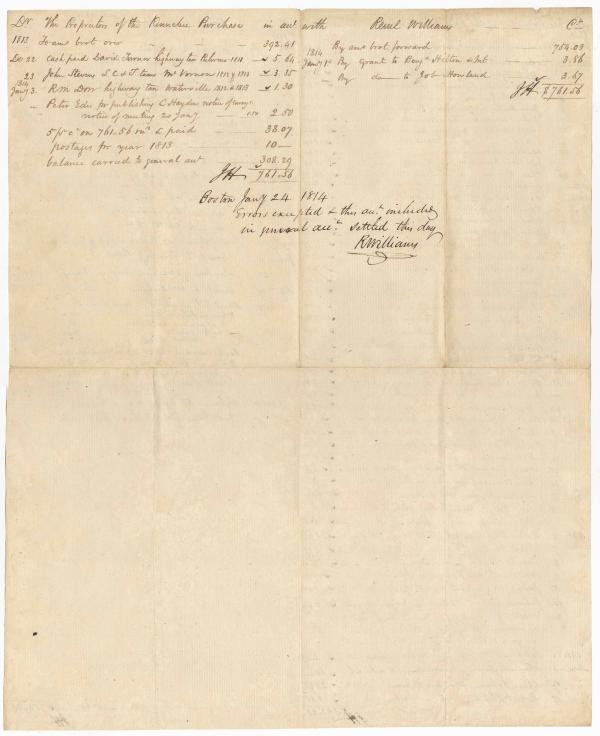 Dr. The Proprietors of the Kennebec Purchase in acct. with Reuel Williams Cr.
1813 To amt brot over 392.41
Dec 22 cash paid David Turner highway tax Palermo 1811 5.64
23 John Stevens S. C & T. taxes Mt Vernon 1811 & 1813 3.35
Jany 3. R M Dorr highway tax Waterville 1812 & 1813 1.30
Peter Edes for publishing C Hayden notice of
notice of meeting 20 Jany 1.50 2.50
5 pr ct on 761.56 & paid 38.07
postages for year 1813 10—
balance carried to general act 308.29
JH 761.56
1814 By amt brot forward 754.03
Jany 1st By Grant to Benj. Hilton 3.86
By do to Job Howland 3.67
JH $761.56
Boston Jany 24 1814
Errors excepted & this act. included
in general act. settled this day
RWilliams